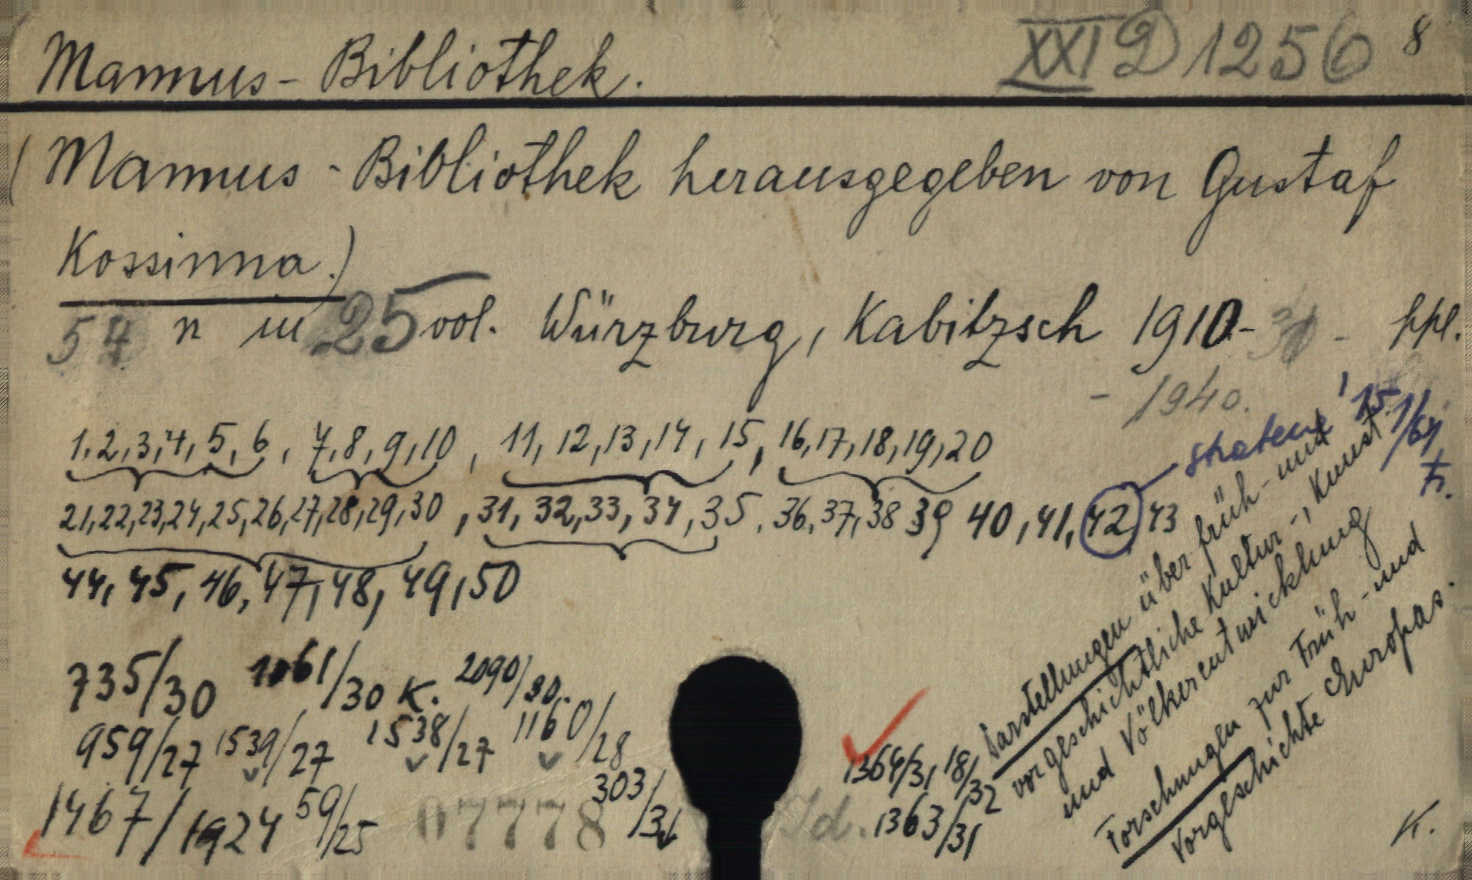 Mannus-Bibliothek. XXI D 1256 8
(Mannus-Bibliothek herausgegeben von Gustaf
Kossinna.)
54 n in 25 vol. Würzburg, Kabitzsch 1910- - ppl.
- 1940.
1,2,3,4,5,6, 7,8,9,10, 11,12,13,14,15, 16,17,18,19,20
21,22,23,24,25,26,27,28,29,30, 31,32,33,34,35. 36,37,38 39 40,41,42,43
44,45,46,47,48,49,50
735/30 1061/30 K. 2090/30.
959/27 1539/27 1538/27 1160/28
1467/1924 59/25 07778 303/31
1364/31 18/32
Id. 1363/31
Darstellungen über früh- und
vorgeschichtliche Kultur-, Kunst
und Völkerentwicklung
Forschungen zur Früh- und
Vorgeschichte Europas.
K.